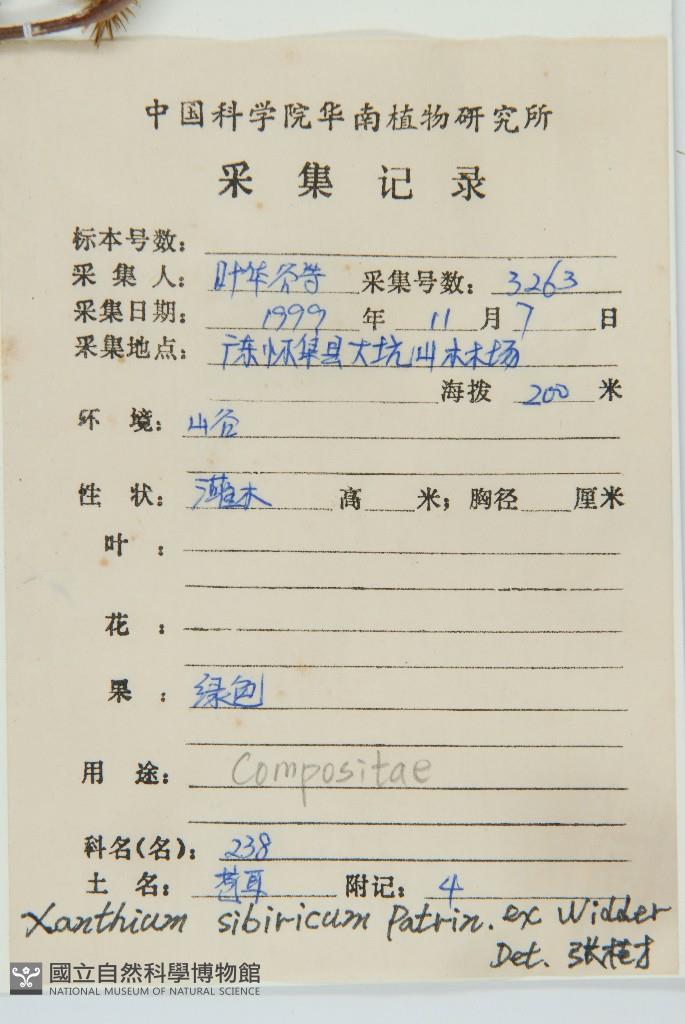 中国科学院华南植物研究所
采 集 记 录
标本号数:
采 集 人: 叶华谷等 采集号数: 3263
采集日期: 1999 年 11 月 7 日
采集地点: 广东怀集县大坑山林场
海拨 200 米
环 境: 山谷
性 状: 灌木 高 米; 胸径 厘米
叶 :
花 :
果 : 绿色
用 途: Compositae
科名(名): 238
土 名: 苍耳 附记: 4
Xanthium sibiricum Patrin. ex Widder
Det. 张桂才
國立自然科學博物館
NATIONAL MUSEUM OF NATURAL SCIENCE